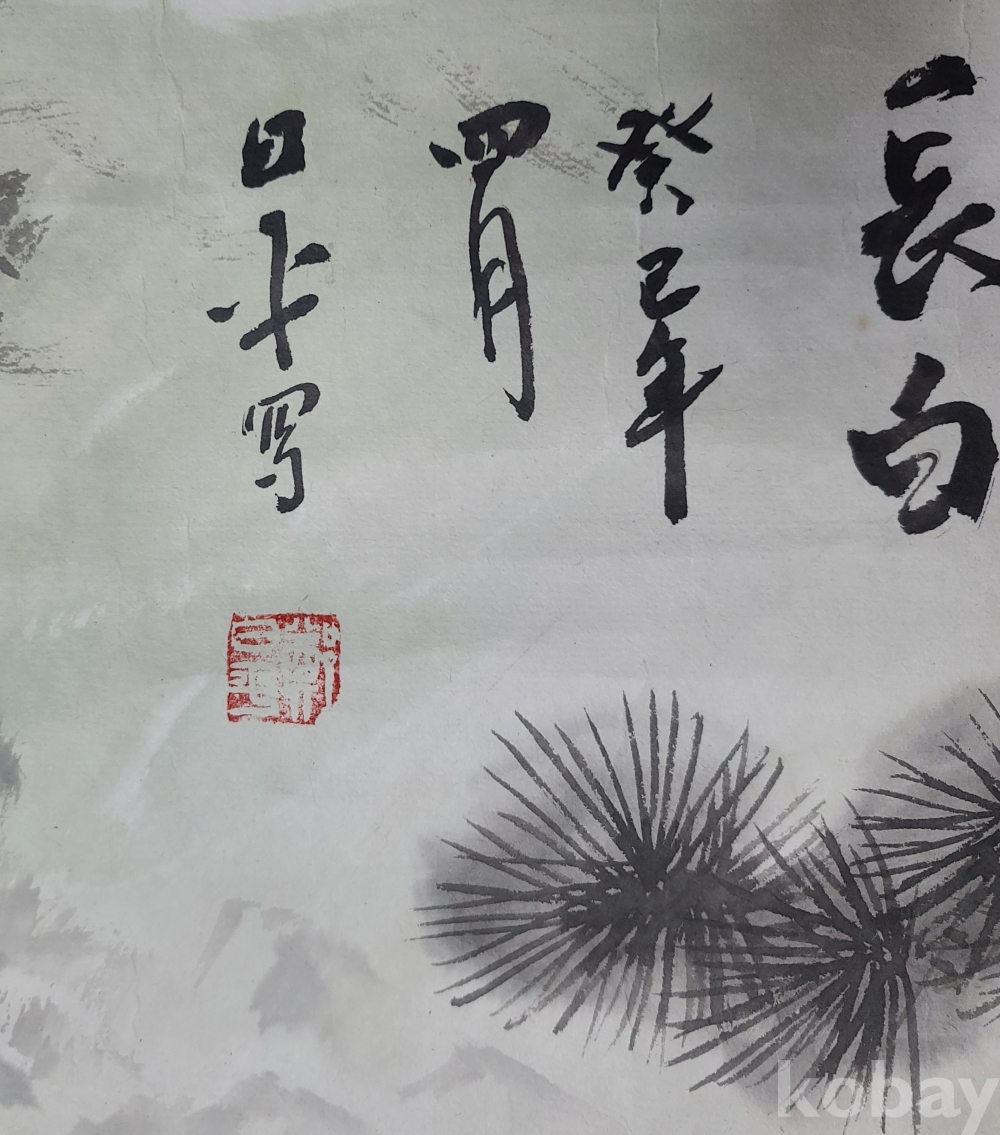 長白
癸巳年
四月
日卡写
kobay